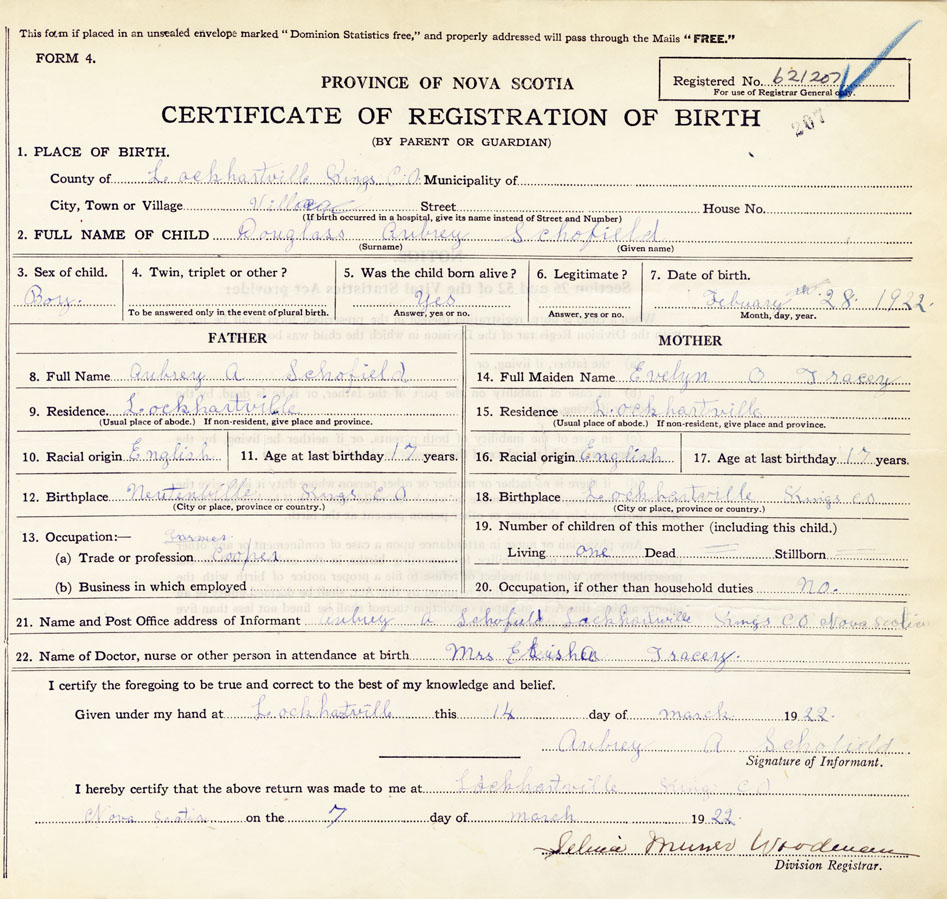 This form if placed in an unsealed envelope marked "Dominion Statistics free," and properly addressed will pass through the Mails "FREE."
FORM 4.
Registered No. 621207
For use of Registrar General only.
207
PROVINCE OF NOVA SCOTIA
CERTIFICATE OF REGISTRATION OF BIRTH
(BY PARENT OR GUARDIAN)
1. PLACE OF BIRTH.
County of Lockhartville Kings C.O. Municipality of
City, Town or Village Village Street House No.
(If birth occurred in a hospital, give its name instead of Street and Number)
2. FULL NAME OF CHILD Douglass Aubrey Schofield
(Surname) (Given name)
3. Sex of child. 4. Twin, triplet or other? 5. Was the child born alive? 6. Legitimate? 7. Date of birth.
Boy. Yes February 28th 1922
To be answered only in the event of plural birth. Answer, yes or no. Answer, yes or no. Month, day, year.
FATHER
8. Full Name Aubrey A Schofield
9. Residence Lockhartville
(Usual place of abode.) If non-resident, give place and province.
10. Racial origin English 11. Age at last birthday 17 years.
12. Birthplace Kings CO
(City or place, province or country.)
13. Occupation:— Farmer
(a) Trade or profession Cooper
(b) Business in which employed
MOTHER
14. Full Maiden Name Evelyn O Tracey
15. Residence Lockhartville
(Usual place of abode.) If non-resident, give place and province.
16. Racial origin English 17. Age at last birthday 17 years.
18. Birthplace Lockhartville Kings CO
(City or place, province or country.)
19. Number of children of this mother (including this child.)
Living one Dead Stillborn
20. Occupation, if other than household duties no.
21. Name and Post Office address of Informant Aubrey A Schofield Lockhartville Kings CO Nova Scotia
22. Name of Doctor, nurse or other person in attendance at birth Mrs Elisha Tracey.
I certify the foregoing to be true and correct to the best of my knowledge and belief.
Given under my hand at Lockhartville this 14 day of march 1922.
Aubrey A Schofield
Signature of Informant.
I hereby certify that the above return was made to me at Lockhartville Kings CO
Nova Scotia on the 7 day of march 1922.
Woodman
Division Registrar.